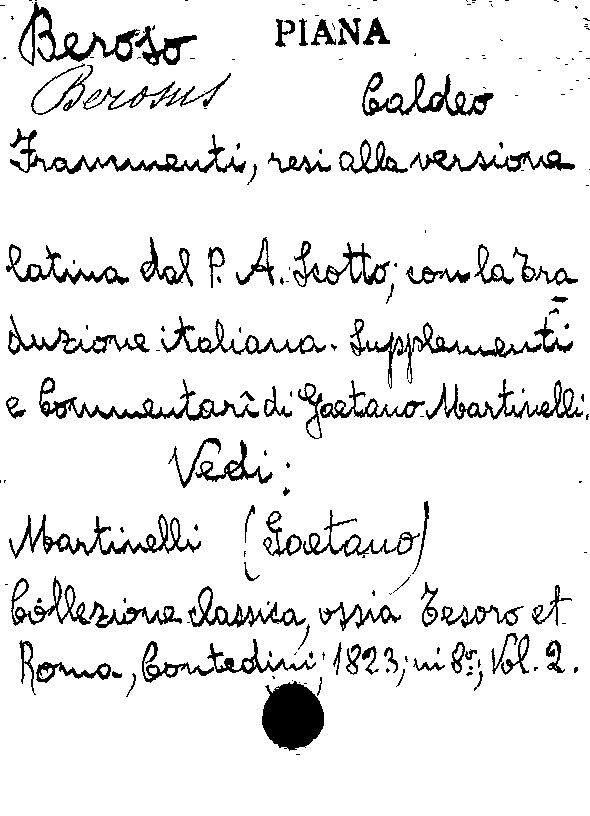 Beroso PIANA
Berosus Caldeo
Frammenti, resi alla versione
latina dal P. A. Scotto; con la tra
duzione italiana. Supplementi
e Commentarî di Gaetano Martinelli.
Vedi:
Martinelli (Gaetano)
Collezione classica, ossia Tesoro et
Roma, Contedini, 1823; in 8º; Vol. 2.